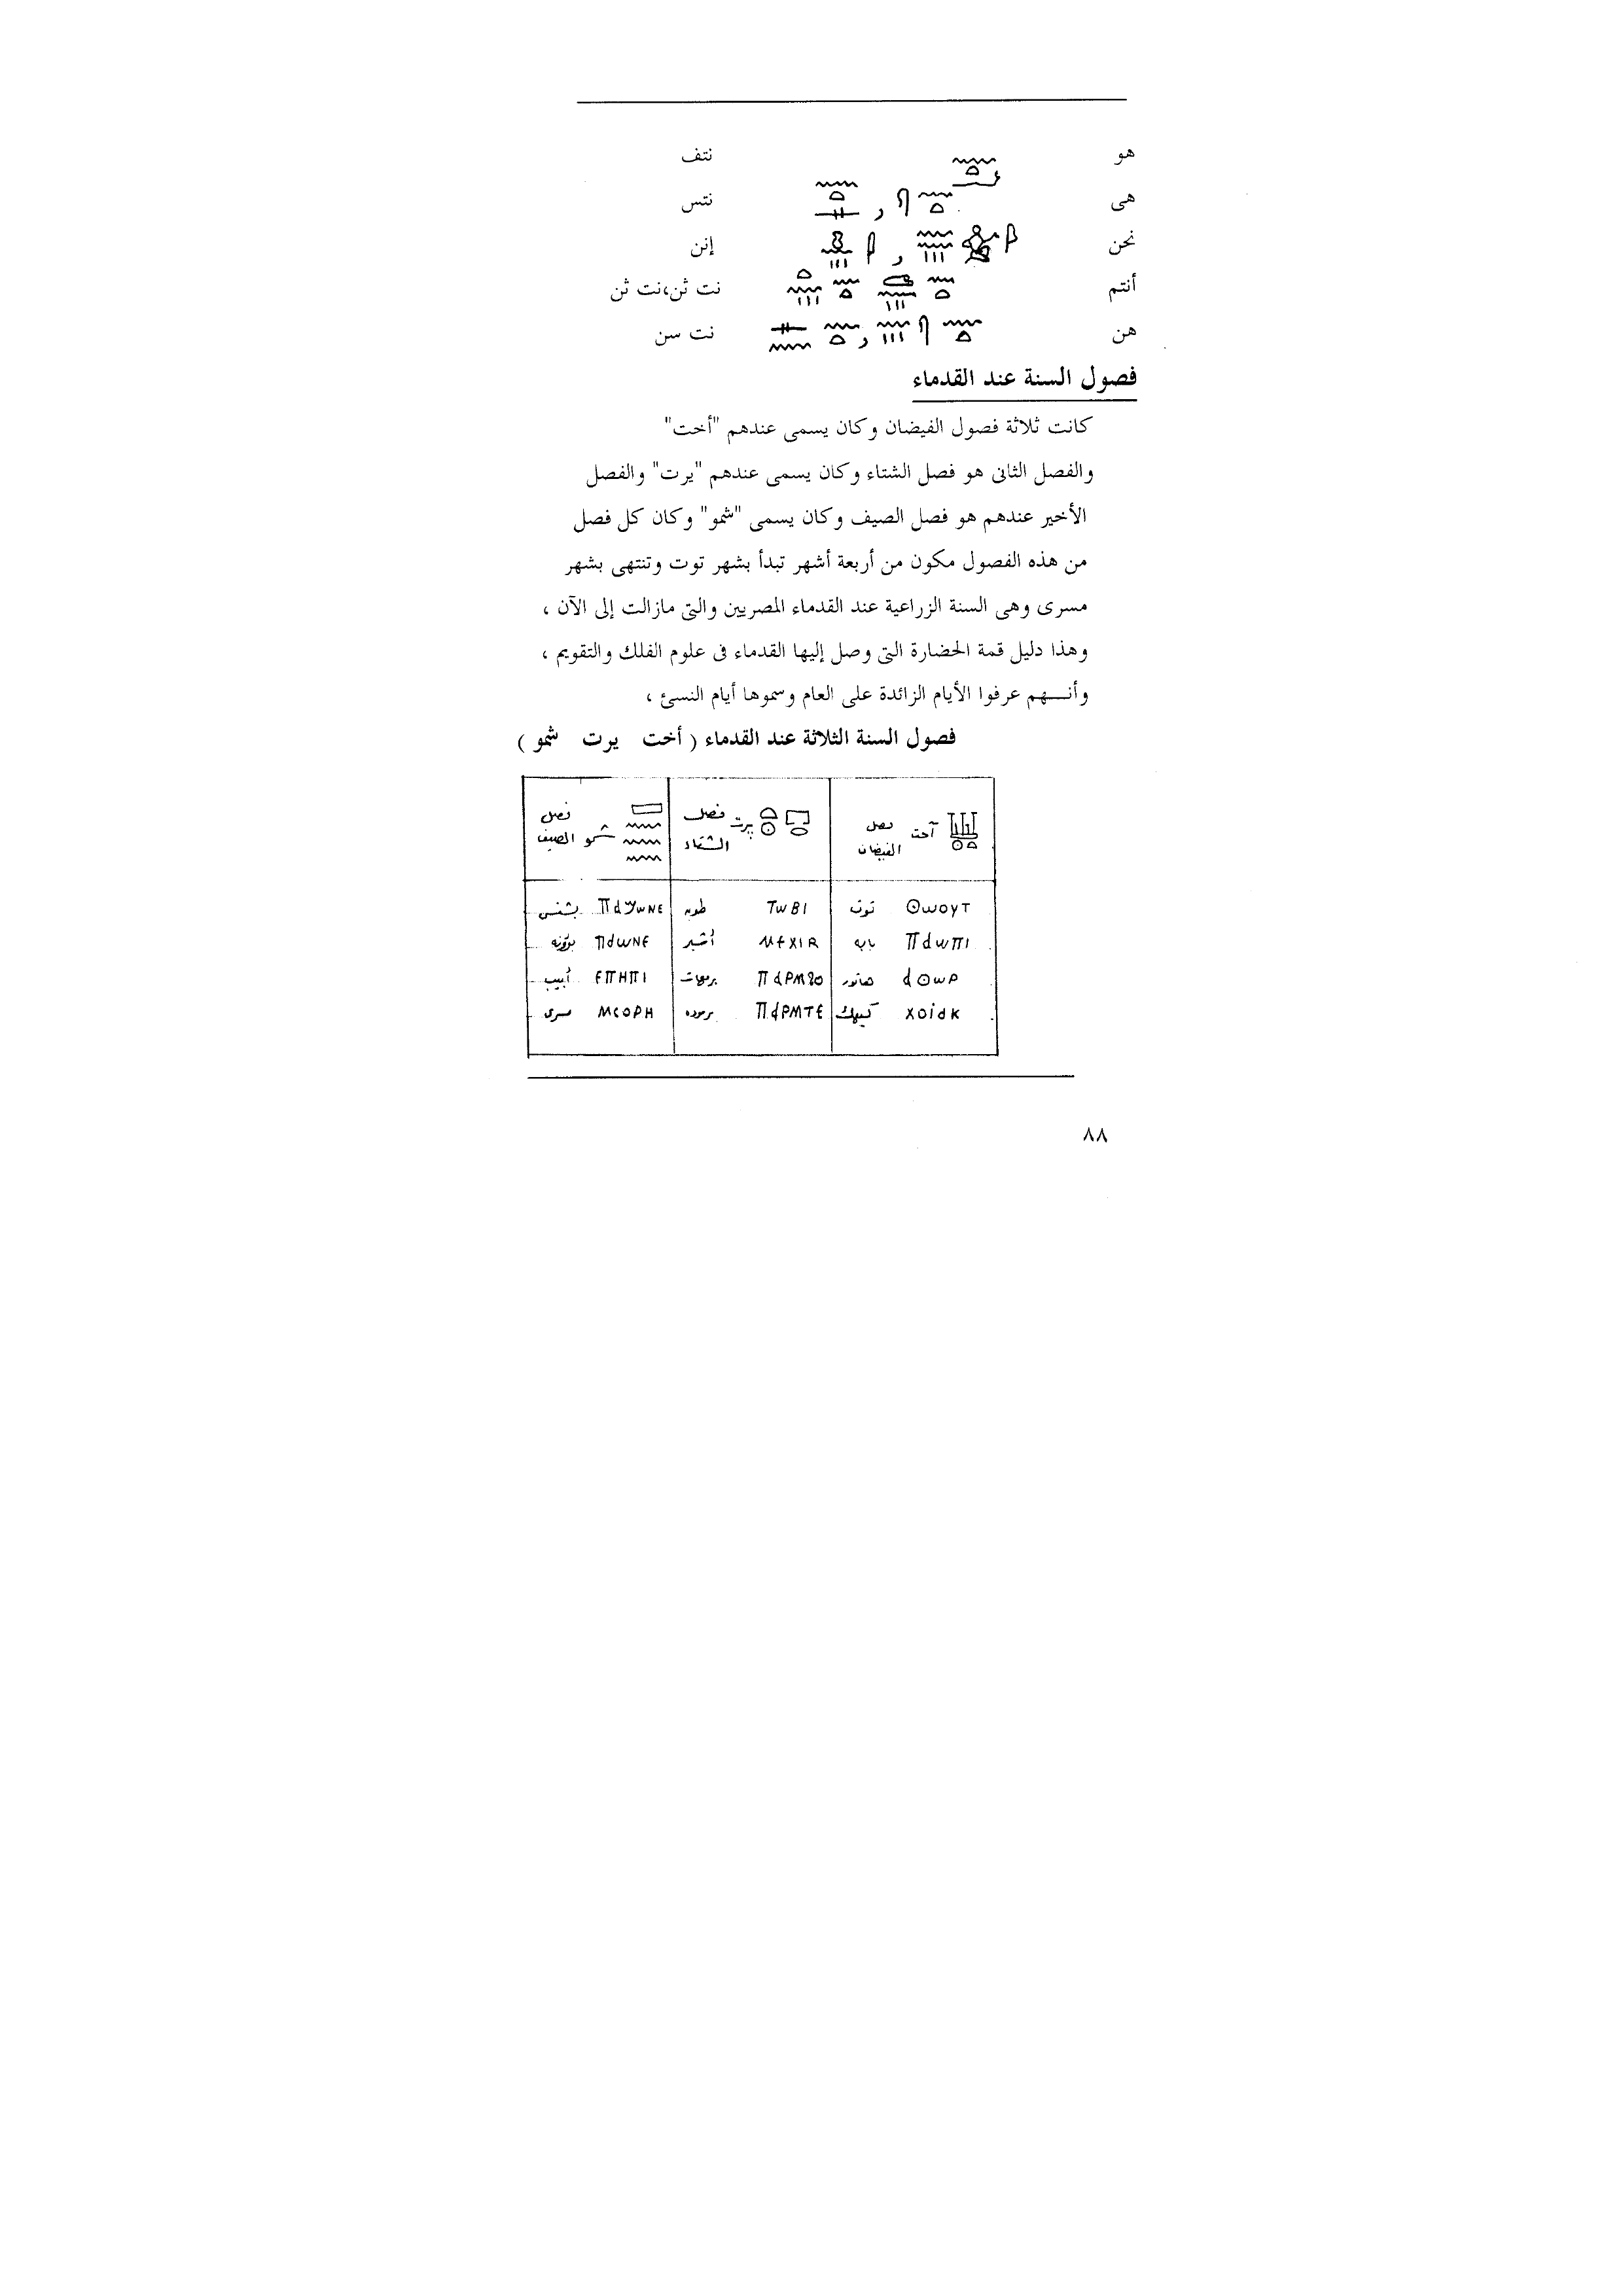 هو نتف
هى نتس
نحن إنن
أنتم نت ثن،نت ثن
هن نت سن
فصول السنة عند القدماء
كانت ثلاثة فصول الفيضان وكان يسمى عندهم "أخت"
والفصل الثانى هو فصل الشتاء وكان يسمى عندهم "يرت" والفصل
الأخير عندهم هو فصل الصيف وكان يسمى "شمو" وكان كل فصل
من هذه الفصول مكون من أربعة أشهر تبدأ بشهر توت وتنتهى بشهر
مسرى وهى السنة الزراعية عند القدماء المصريين والتى مازالت إلى الآن ،
وهذا دليل قمة الحضارة التى وصل إليها القدماء فى علوم الفلك والتقويم ،
وأنـــهم عرفوا الأيام الزائدة على العام وسموها أيام النسئ ،
فصول السنة الثلاثة عند القدماء ( أخت يرت شمو )
آخت فصل الفيضان
برت فصل الشتاء
شمو فصل الصيف
ⲐⲱⲟⲩⲦ توت ⲦⲱⲂⲒ طوبه ⲠⲁϢⲱⲚⲈ بشنس
Ⲡⲁⲱⲡⲓ بابه ⲘⲈⲬⲒⲢ أمشير ⲠⲁⲱⲚⲈ بؤونه
ⲁⲐⲱⲢ هاتور ⲠⲁⲢⲘϨⲞ برمهات ⲈⲠⲎⲠⲒ أبيب
ⲬⲞⲒⲁⲔ كيهك ⲠⲁⲢⲘⲦⲈ برموده ⲘⲈⲤⲞⲢⲎ مسرى
٨٨